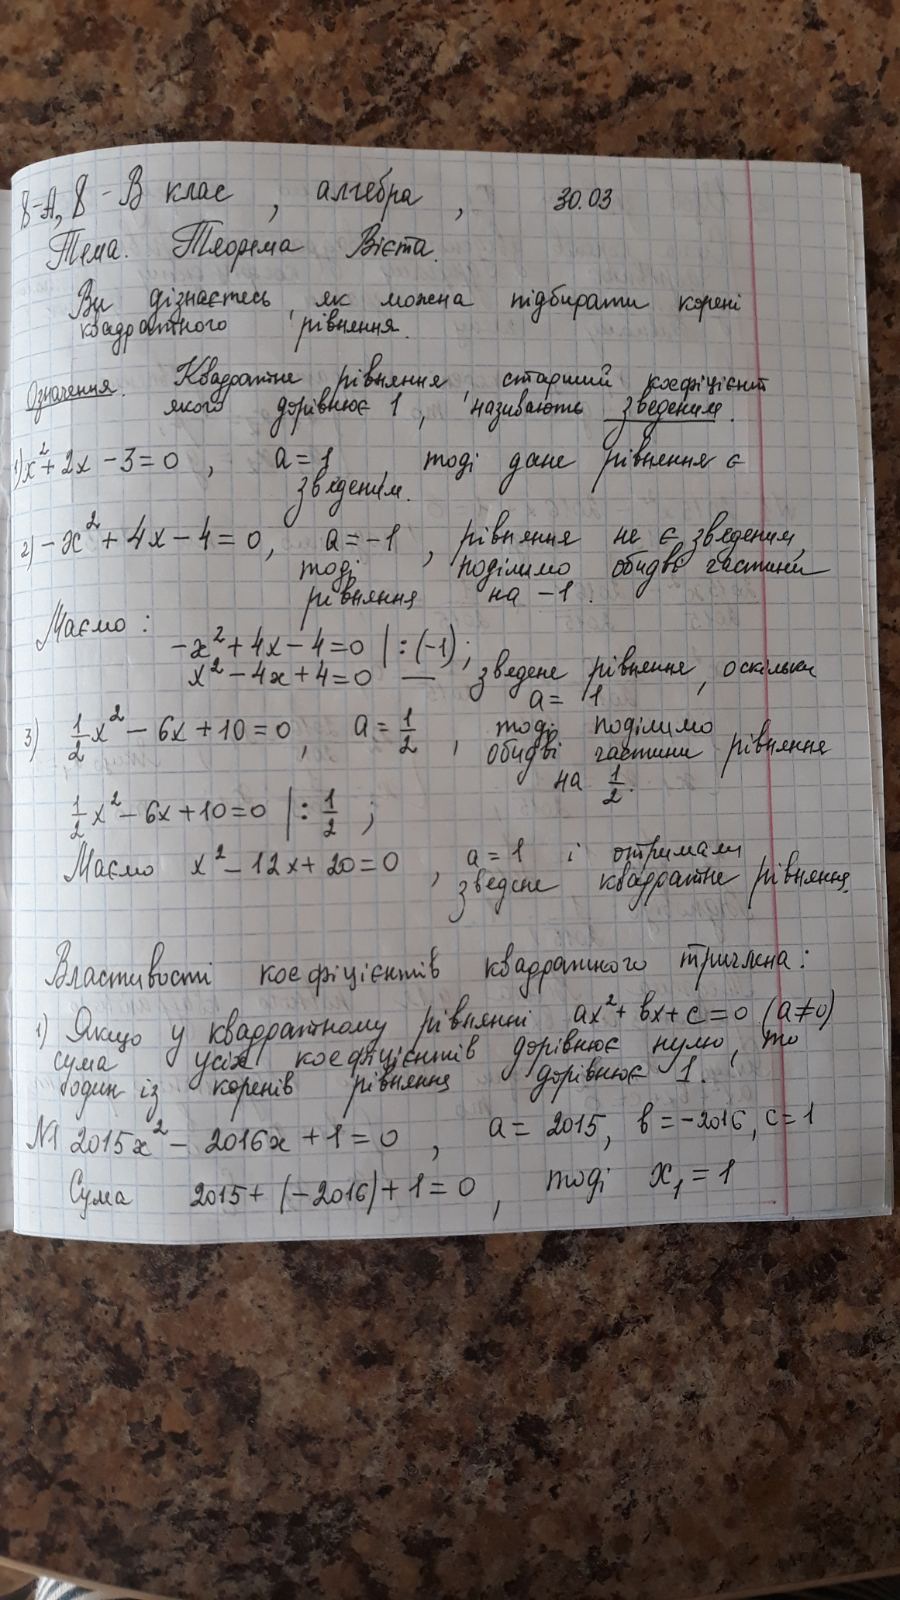 8-А, 8-В клас, алгебра, 30.03
Тема. Теорема Вієта.
Ви дізнаєтесь, як можна підбирати корені
квадратного рівнення.
Означення. Квадратне рівняння, старший коефіцієнт
якого дорівнює 1, називають зведеним.
1) x² + 2x - 3 = 0, a = 1, тоді дане рівняння є
зведеним.
2) -x² + 4x - 4 = 0, a = -1, рівняння не є зведеним,
тоді поділимо обидві частини
рівняння на -1.
Маємо:
-x² + 4x - 4 = 0 | : (-1);
x² - 4x + 4 = 0 — зведене рівняння, оскільки
a = 1
3) 1/2 x² - 6x + 10 = 0, a = 1/2, тоді поділимо
обидві частини рівняння
на 1/2.
1/2 x² - 6x + 10 = 0 | : 1/2;
Маємо x² - 12x + 20 = 0, a = 1 і отримали
зведене квадратне рівняння.
Властивості коефіцієнтів квадратного тричлена:
1) Якщо у квадратному рівнянні ax² + bx + c = 0 (a ≠ 0)
сума усіх коефіцієнтів дорівнює нулю, то
один із коренів рівняння дорівнює 1.
№1 2015x² - 2016x + 1 = 0, a = 2015, b = -2016, c = 1
Сума 2015 + (-2016) + 1 = 0, тоді x₁ = 1